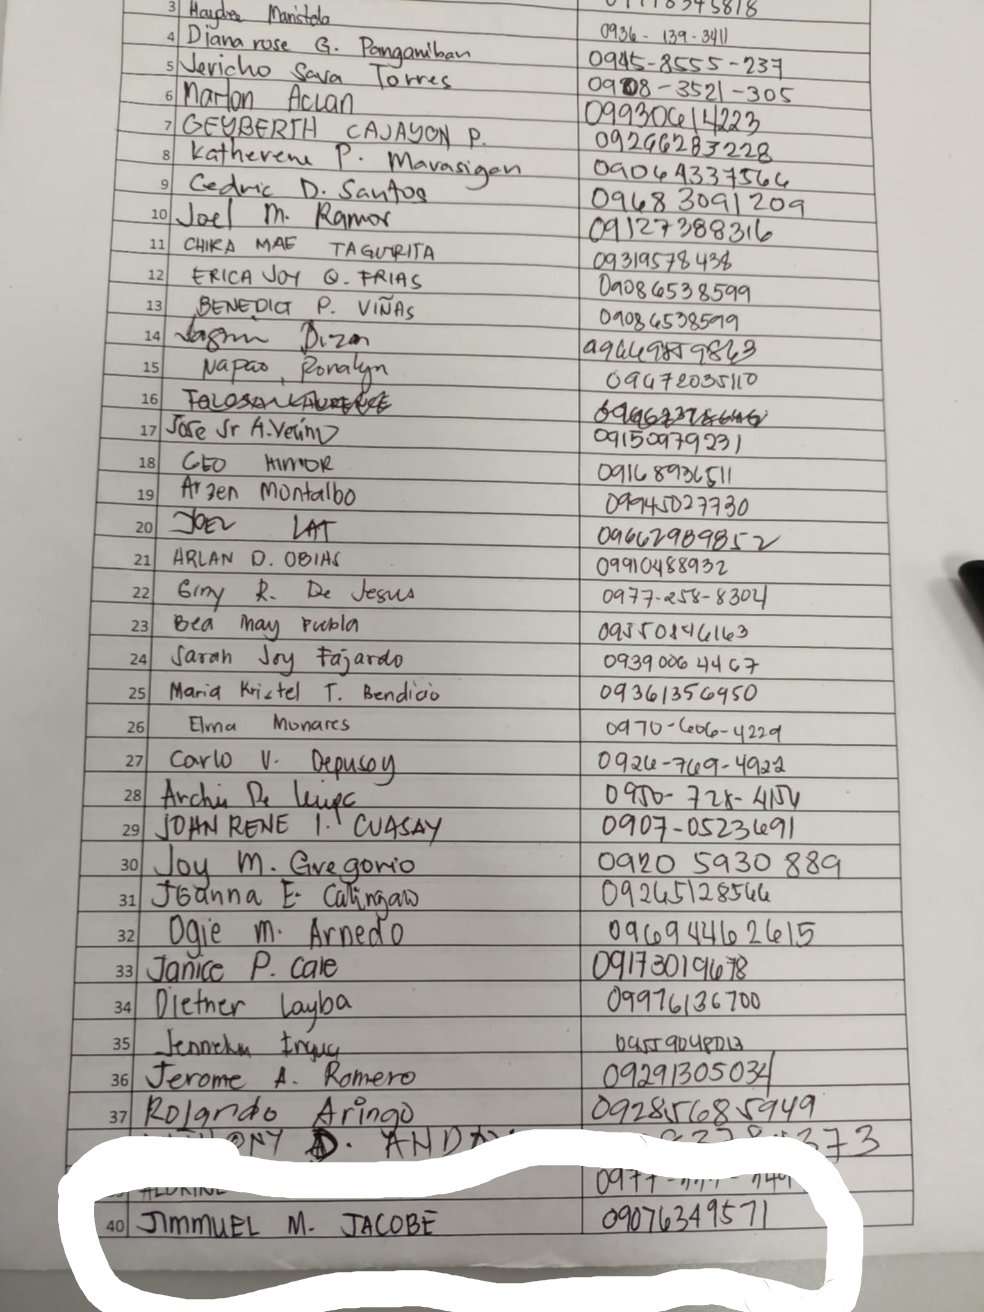 3 Haydee Maristela
4 Diana rose G. Panganiban 0936-139-3411
5 Jericho Sava Torres 0945-8555-237
6 Marlon Aclan 0908-3521-305
7 GEYBERTH CAJAYON P. 09930614223
8 Katherene P. Marasigan 09266283228
9 Cedric D. Santos 09064337566
10 Joel M. Ramos 09683091209
11 CHIKA MAE TAGURITA 09127388316
12 ERICA JOY Q. FRIAS 09319578438
13 BENEDICT P. VIÑAS 09086538599
14 Dizon 09086538599
15 Napao, Ronalyn
16 09672035110
17 Jose Jr A. 09150979231
18 GEO HIMOR 09168936511
19 Arzen Montalbo 09945027730
20 JOEL LAT 09662989852
21 ARLAN D. OBIAS 09910488932
22 R. De Jesus 0977-258-8304
23 Bea May Puebla 09550846163
24 Sarah Joy Fajardo 09390064467
25 Maria Kristel T. Bendicio 09361356950
26 Elma Monares 0970-606-4229
27 Carlo V. Depusoy 0926-769-4922
28 Archie De 0950-728-4154
29 JOHN RENE I. CUASAY 0907-0523691
30 Joy M. Gregorio 0920 5930 889
31 Joanna E. Calingaw 09265128566
32 Ogie M. Arnedo 09694462615
33 Janice P. Cale 09173019678
34 Diether Layba 09976136700
35
36 Jerome A. Romero 09291305034
37 Rolando Aringo 09285685949
40 JIMMUEL M. JACOBE 09076349571